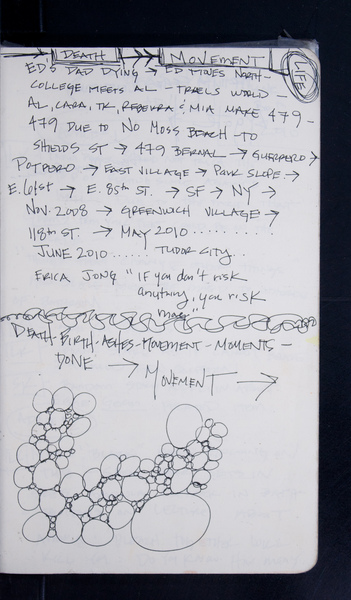 DEATH → MOVEMENT → LIFE
ED'S DAD DYING → ED MOVES NORTH -
COLLEGE MEETS AL - TRAVELS WORLD -
AL, CARA, TK, REBEKKA & MIA MAKE 479 -
479 DUE TO NO MOSS BEACH - TO
SHIELDS ST → 479 BERNAL → GUERRERO →
POTRERO → EAST VILLAGE → PARK SLOPE →
E. 61st → E. 85th ST. → SF → NY →
NOV. 2008 → GREENWICH VILLAGE →
118th ST. → MAY 2010 ..........
JUNE 2010 ...... TUDOR CITY...
ERICA JONG "IF you don't risk
anything, you risk
DEATH - BIRTH - ASHES - MOVEMENT - MOMENTS -
DONE →
MOVEMENT →